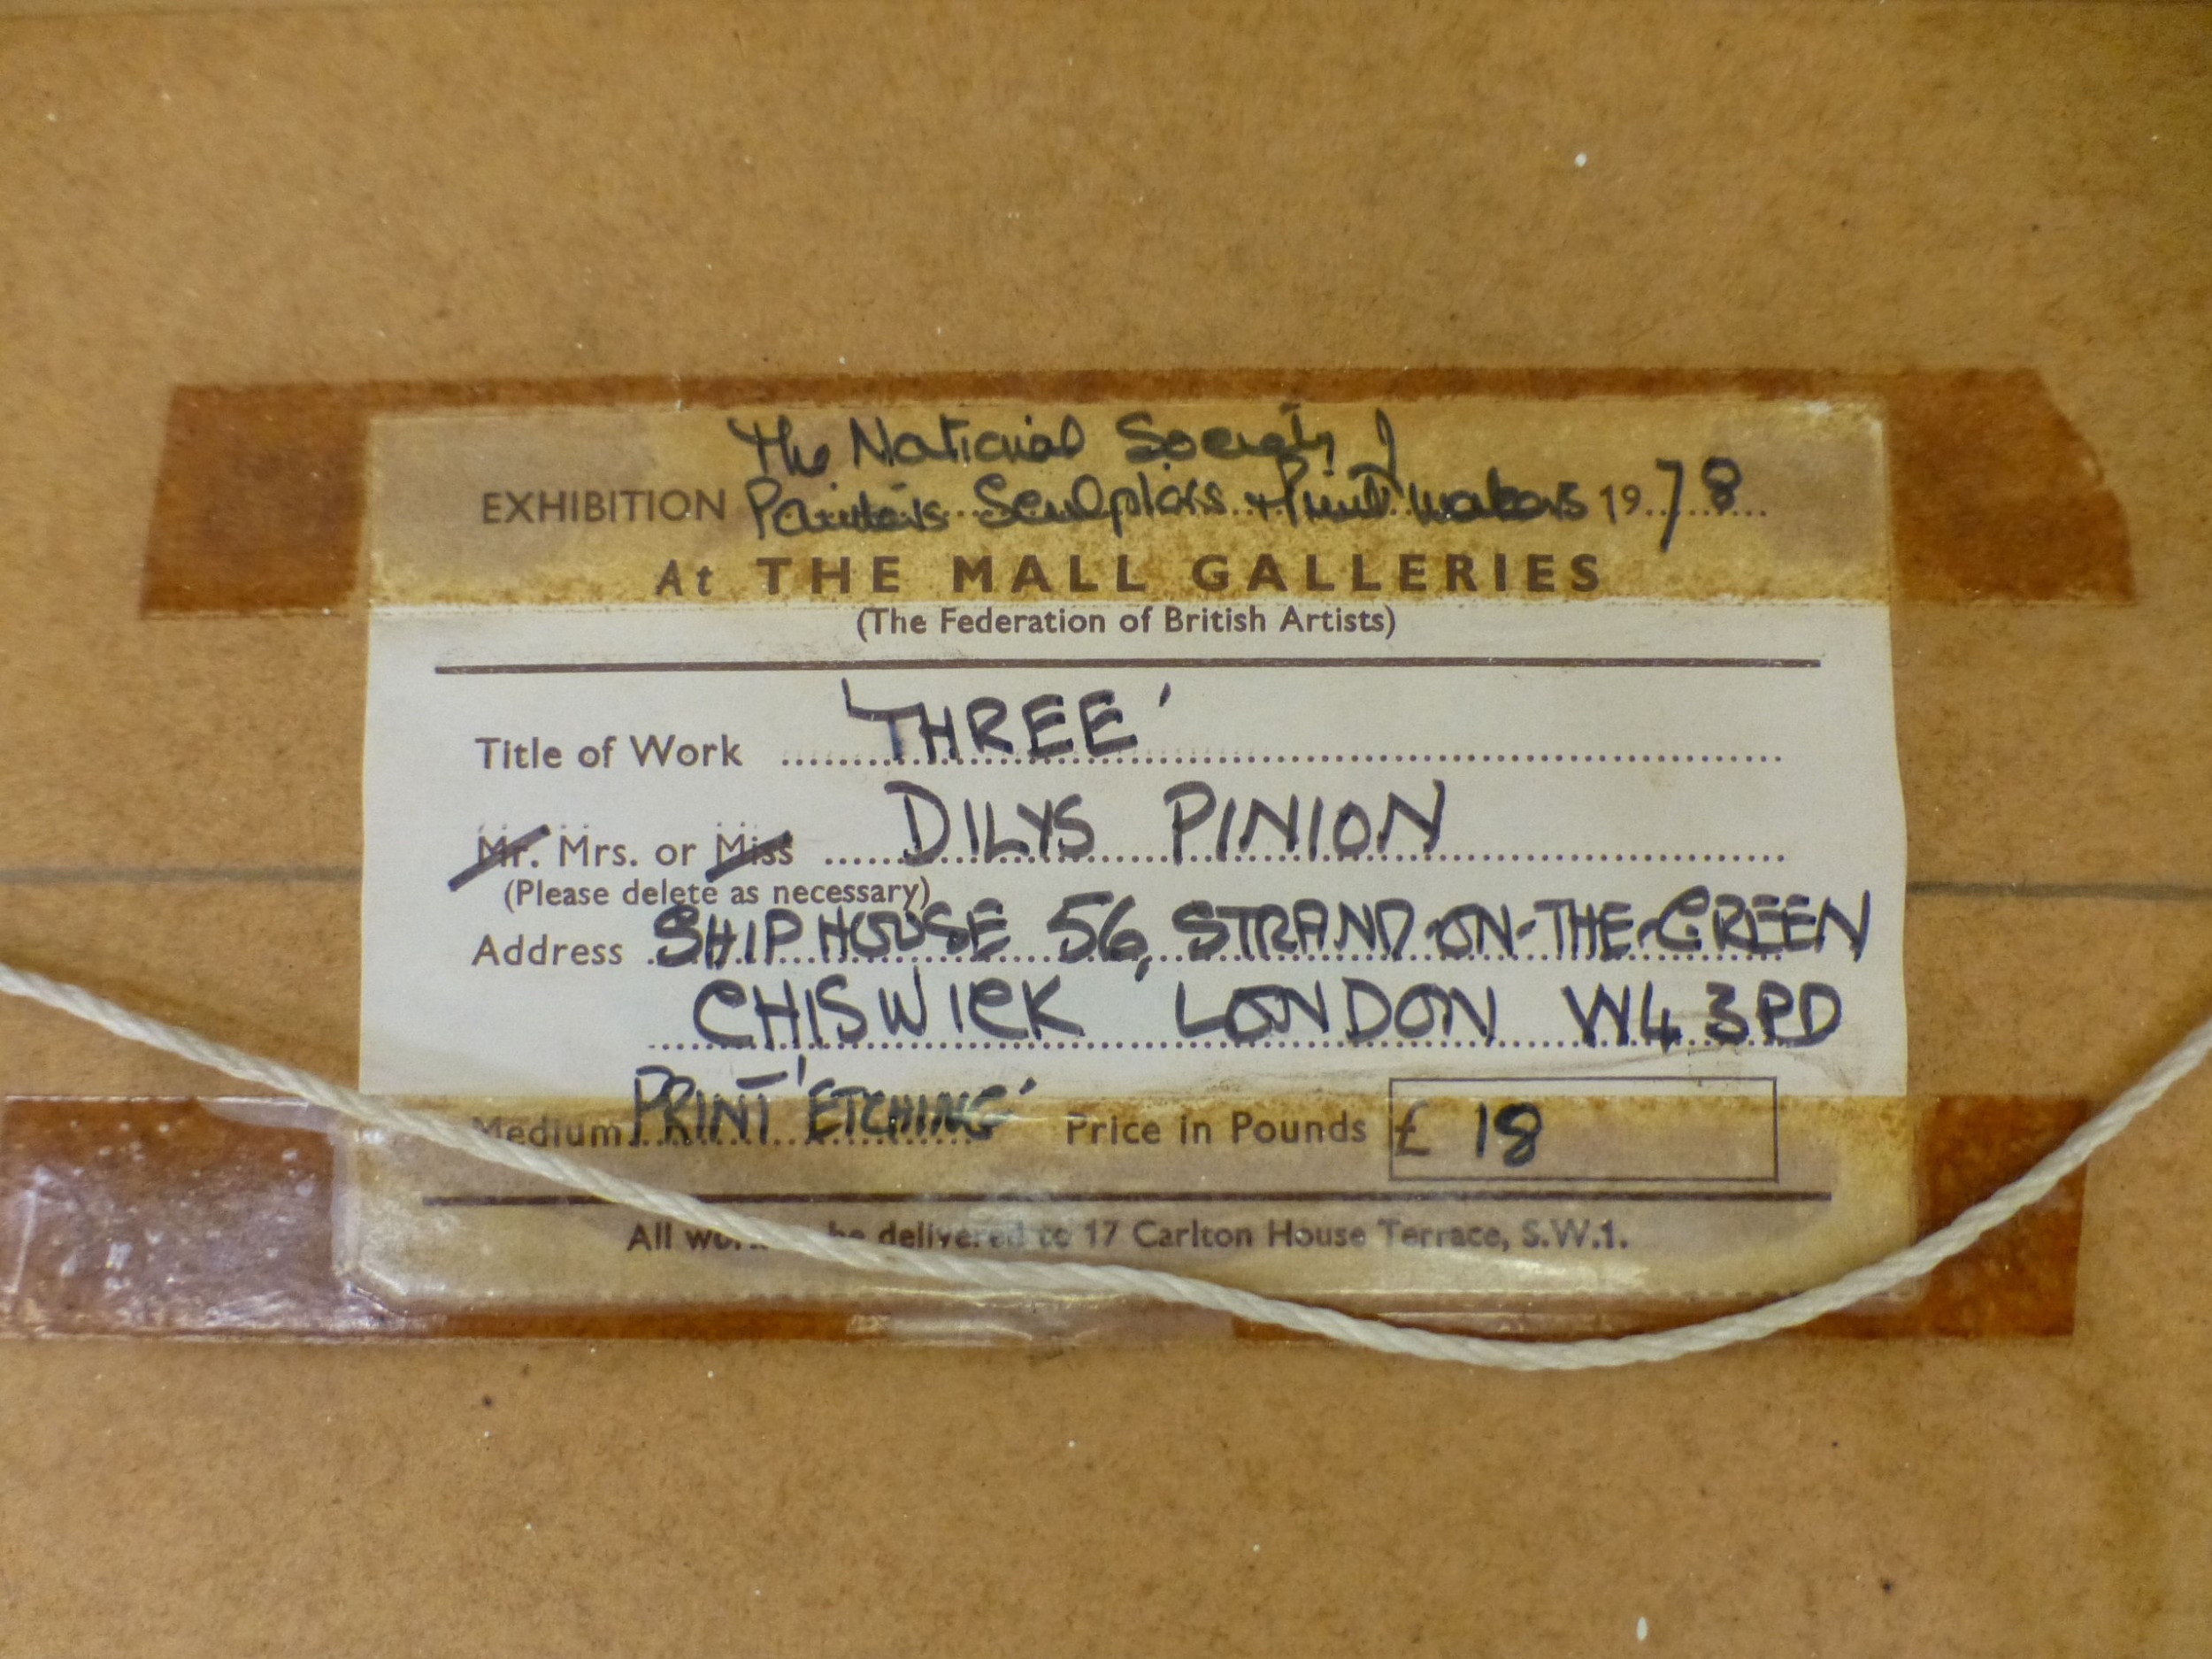 The National Society of
EXHIBITION Painters Sculptors & Printmakers 19 78
At THE MALL GALLERIES
(The Federation of British Artists)
Title of Work 'THREE'
Mr. Mrs. or Miss DILYS PINION
(Please delete as necessary)
Address SHIP HOUSE 56, STRAND-ON-THE-GREEN
CHISWICK LONDON W4 3PD
Medium PRINT 'ETCHING' Price in Pounds £ 18
All be delivered to 17 Carlton House Terrace, S.W.1.